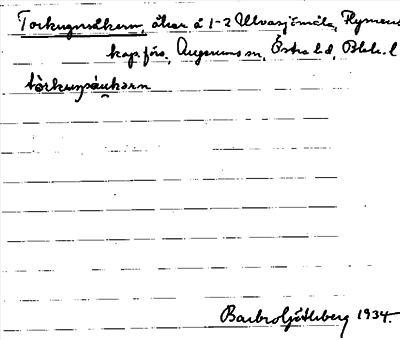 Torkugnsåkern, åker å 1-2 Ulvasjömåla, Flymens
kap.förs., Augerums sn, Östra hd, Blek. l
tòrkunsåukərn
Barbro Ljötleberg 1934.